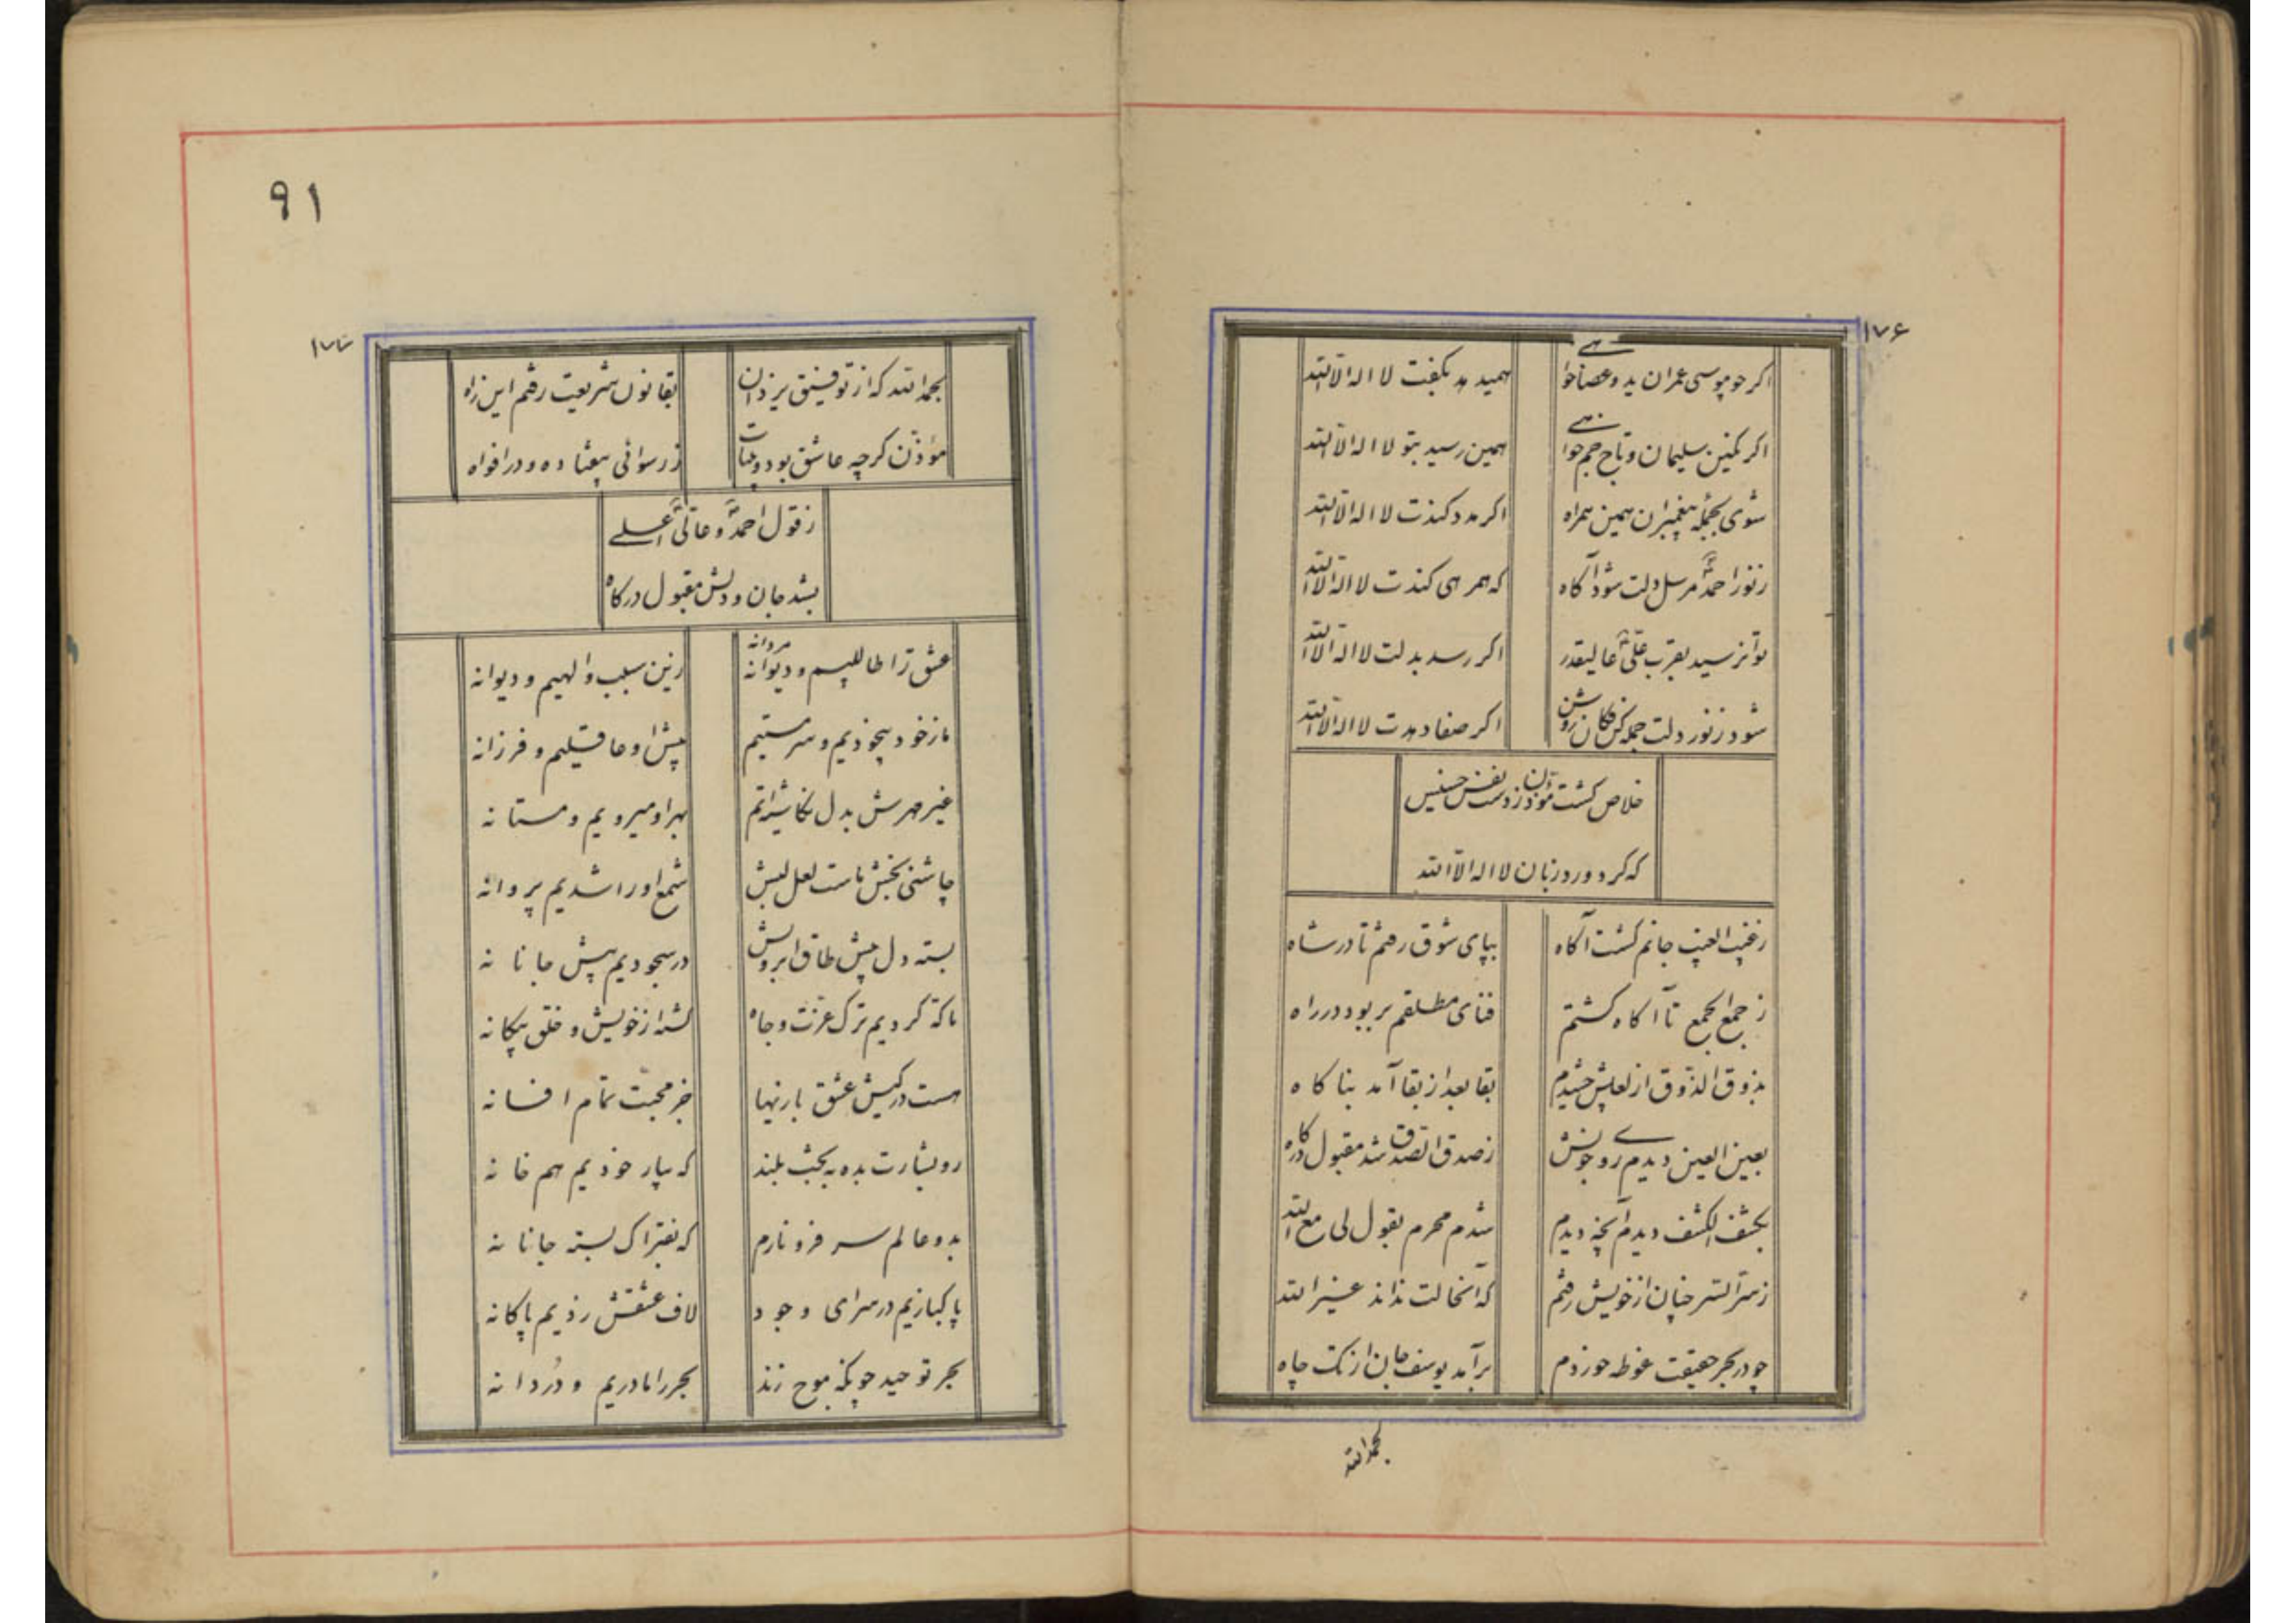 ۱۷۶
اکر چو موسی عمران ید و عصا خواهی
همید مد بکفت لا اله الا الله
اکر نکین سلیمان و تاج جم خواهی
همین رسید بتو لا اله الا الله
شوی بجمله پیغمبران همین همراه
اکر مدد کندت لا اله الا الله
ز نور احمد مرسل دلت شود آکاه
که همرهی کندت لا اله الا الله
توانرسید بقرب علی عالیقدر
اکر رسد بدلت لا اله الا الله
شود ز نور دلت جمله کن فکان روشن
اکر صفا دهدت لا اله الا الله
خلاص کشت مؤذن ز دست نفس خسیس
که کرد ورد زبان لا اله الا الله
ز غیب الغیب جانم کشت آکاه
بپای شوق رفتم تا در شاه
ز جمع الجمع تا آکاه کشتم
فنای مطلقم بر بود در راه
بذوق الذوق از لعلش چشیدم
بقا بعد از بقا آمد بناکاه
بعین العین دیدم روی خوبش
ز صدق الصدق شد مقبول درکاه
بکشف الکشف دیدم آنچه دیدم
شدم محرم بقول لی مع الله
ز سر السر چنان از خویش رفتم
که آنحالت نداند غیر الله
چو در بحر حقیقت غوطه خوردم
برآمد یوسف جان از تک چاه
بحمد الله
۹۱
۱۷۷
بحمد الله که از توفیق یزدان
بقانون شریعت رفتم این راه
مؤذن کرچه عاشق بود و بیتاب
ز رسوائی بیفتاده در افواه
ز قول احمد و عالی علی
بشد جان و دلش مقبول درکاه
عشق را طالبیم و دیوانه
مردانه
زین سبب والهیم و دیوانه
ما ز خود بیخودیم و سرمستیم
پیش او عاقلیم و فرزانه
غیر مهرش بدل نکاشته‌ایم
بهر او میرویم و مستانه
چاشنی بخش ماست لعل لبش
شمع او را شدیم پروانه
بسته دل پیش طاق ابرویش
در سجودیم پیش جانانه
ما که کردیم ترک عزت و جاه
کشته از خویش و خلق بیکانه
هست در کیش عشق بازیها
جز محبت تمام افسانه
رو بشارت بده به بخت بلند
که بیار خودیم هم خانه
بدو عالم سر فرو نارم
که بفتراک بسته جانانه
پاکبازیم در سرای وجود
لاف عشقش زدیم پاکانه
بحر توحید چونکه موج زند
بحر را مادریم و دردانه